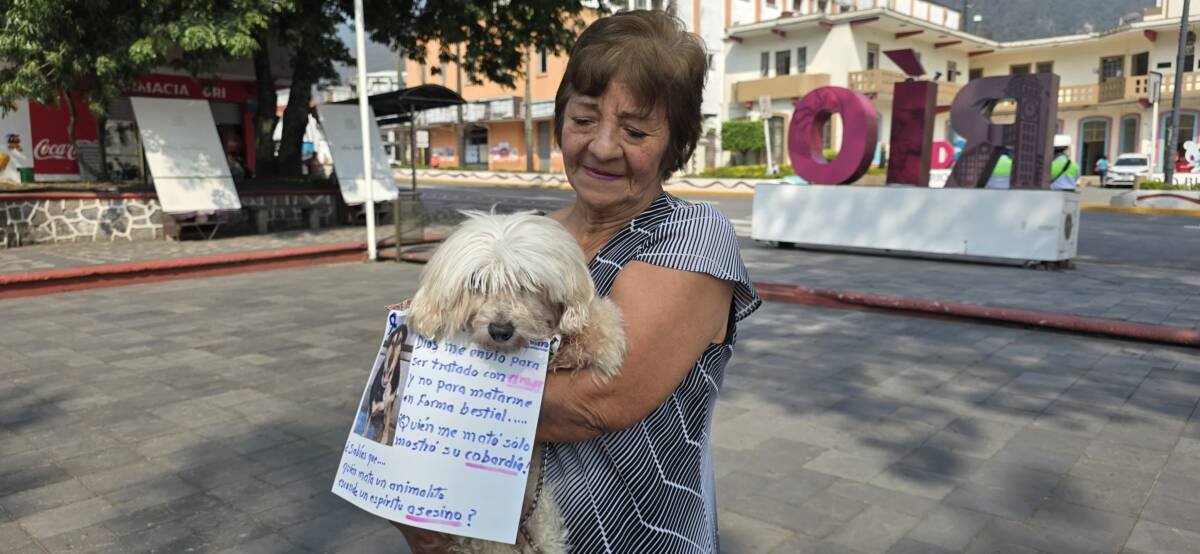 FARMACIA GRI
Coca-Cola
RIO
Dios me envió para
ser tratado con amor
y no para matarme
en Forma bestial.....
Quién me mató sólo
mostró su cobardía!
¿Sabías que....
quién mata un animalito
esconde un espíritu
asesino?